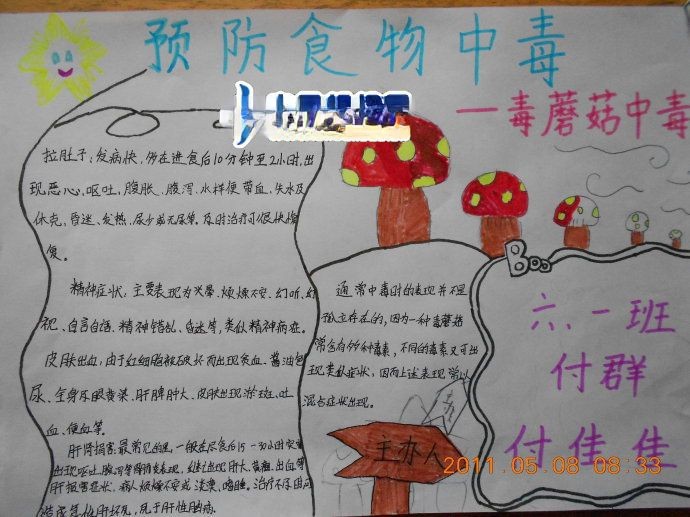 预防食物中毒
—毒蘑菇中毒
拉肚子：发病快，所在进食后10分钟至2小时，出
现恶心，呕吐，腹胀、腹泻、水样便带血、失水及
休克，昏迷、发热、尿少或无尿等，及时治疗可很快恢
复。
精神症状：主要表现为兴奋、烦燥不安、幻听、幻
视、自言自语、精神错乱、昏迷等，类似精神病症。
皮肤出血，由于红细胞被破坏而出现贫血、酱油色
尿、全身及眼黄染、肝脾肿大、皮肤出现淤斑、吐
血、便血等。
肝肾损害，最常见的是，一般在
出现呕吐、腹泻等
肝损害症状，病人烦燥不安或淡漠、嗜睡。治疗不及
通常中毒时的表现并不是
独立存在的，因为一种毒蘑菇
常含有
种毒素，不同的毒素又可出
现类似症状，因而上述表现常以
混合症状出现。
六、一班
付群
付佳佳
主办人
2011.05.08 08:33